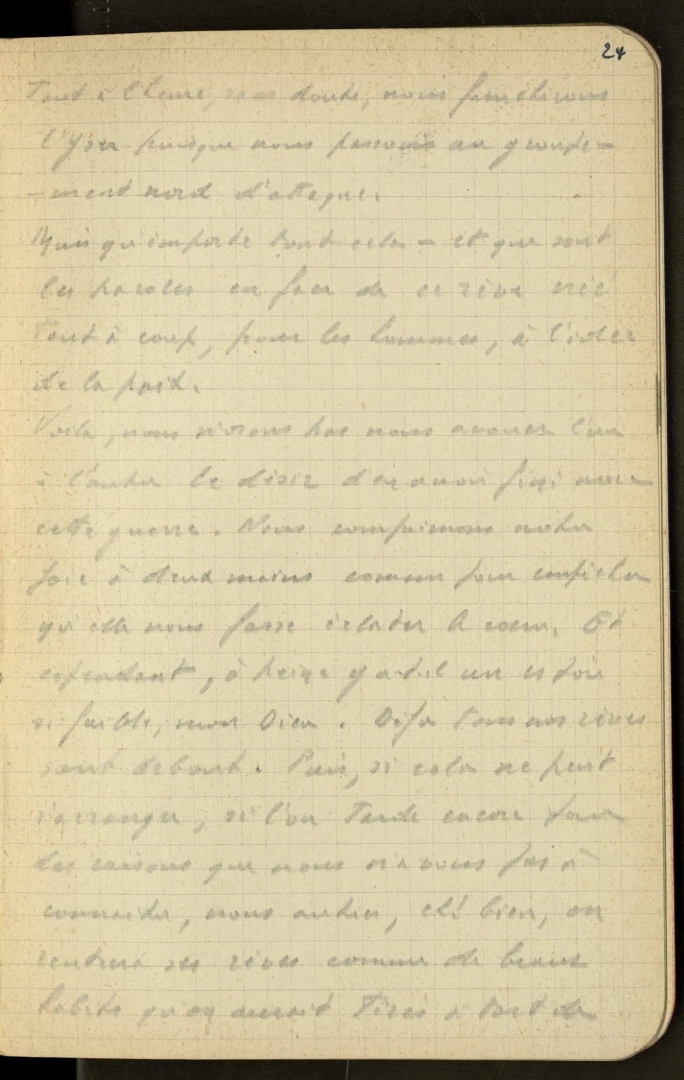 24
Tout à l'heure, sans doute, nous franchirons
l'Yser puisque nous passons au groupe-
-ment nord d'attaque.
Mais qu'importe tout cela – et que sont
les paroles en face de ce rêve créé
tout à coup, pour les hommes, à l'idée
de la paix.
Voilà, nous n'osons pas nous avouer l'un
à l'autre le désir d'en avoir fini avec
cette guerre. Nous comprimons notre
joie à deux mains comme pour empêcher
qu'elle nous fasse éclater le cœur. Et
cependant, à peine y a-t-il un espoir
si faible, mon Dieu. Déjà tous nos rêves
sont debout. Puis, si cela ne peut
s'arranger, si l'on tarde encore pour
des raisons que nous n'avons pas à
connaître, nous autres, eh! bien, on
rentrera ses rêves comme de beaux
habits qu'on aurait tirés à tort de